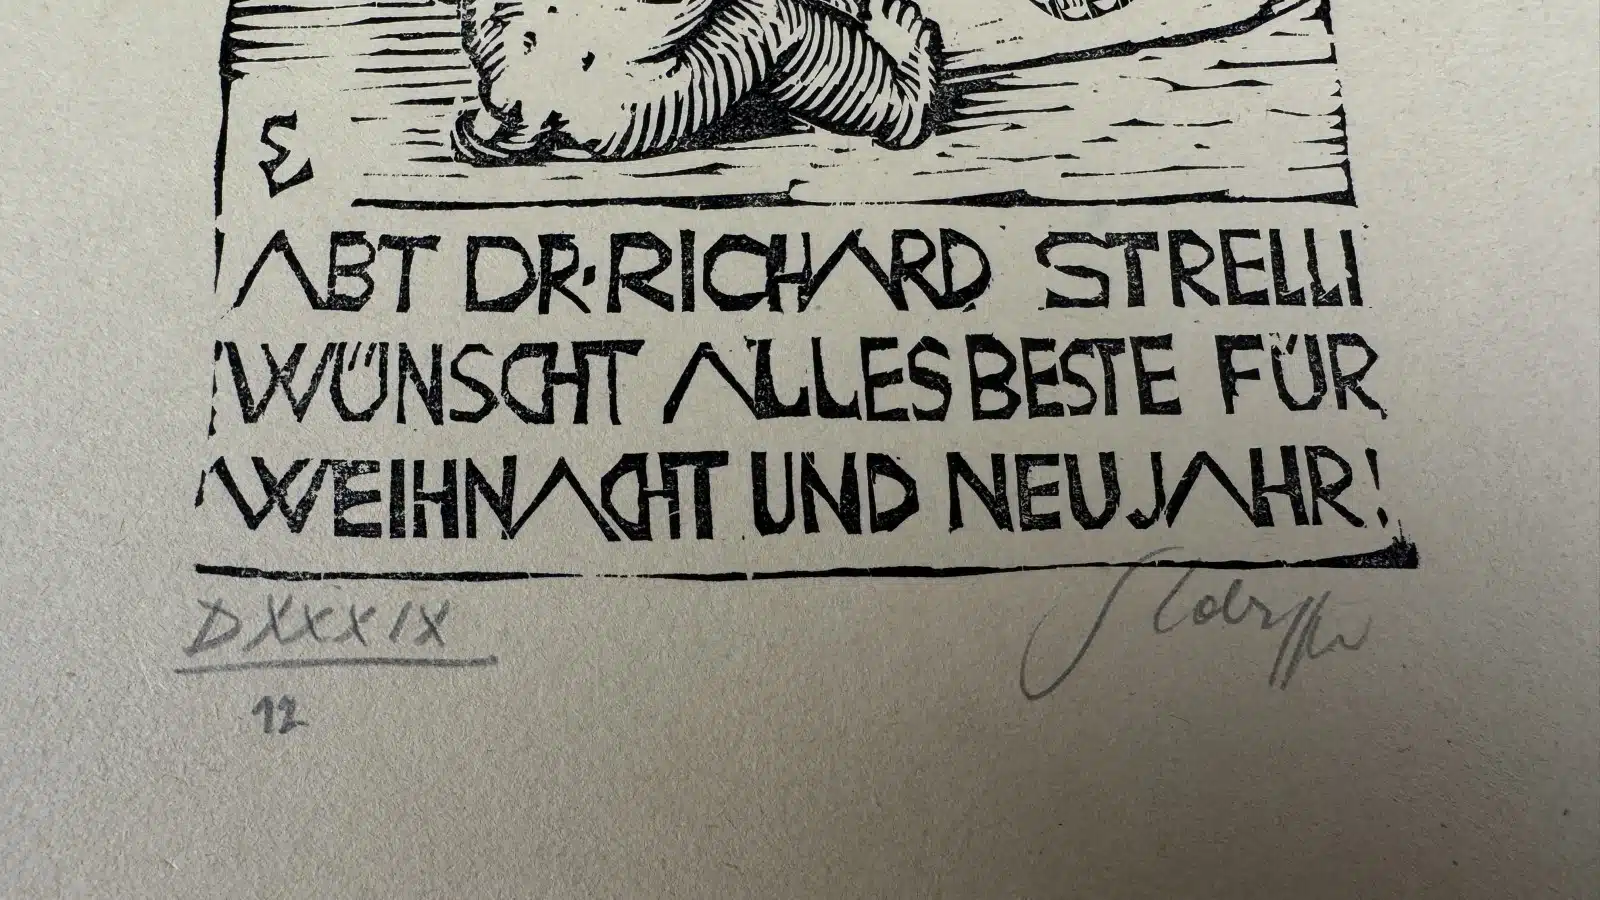 ABT DR. RICHARD STRELLI
WÜNSCHT ALLES BESTE FÜR
WEIHNACHT UND NEUJAHR!
DXXXIX
12